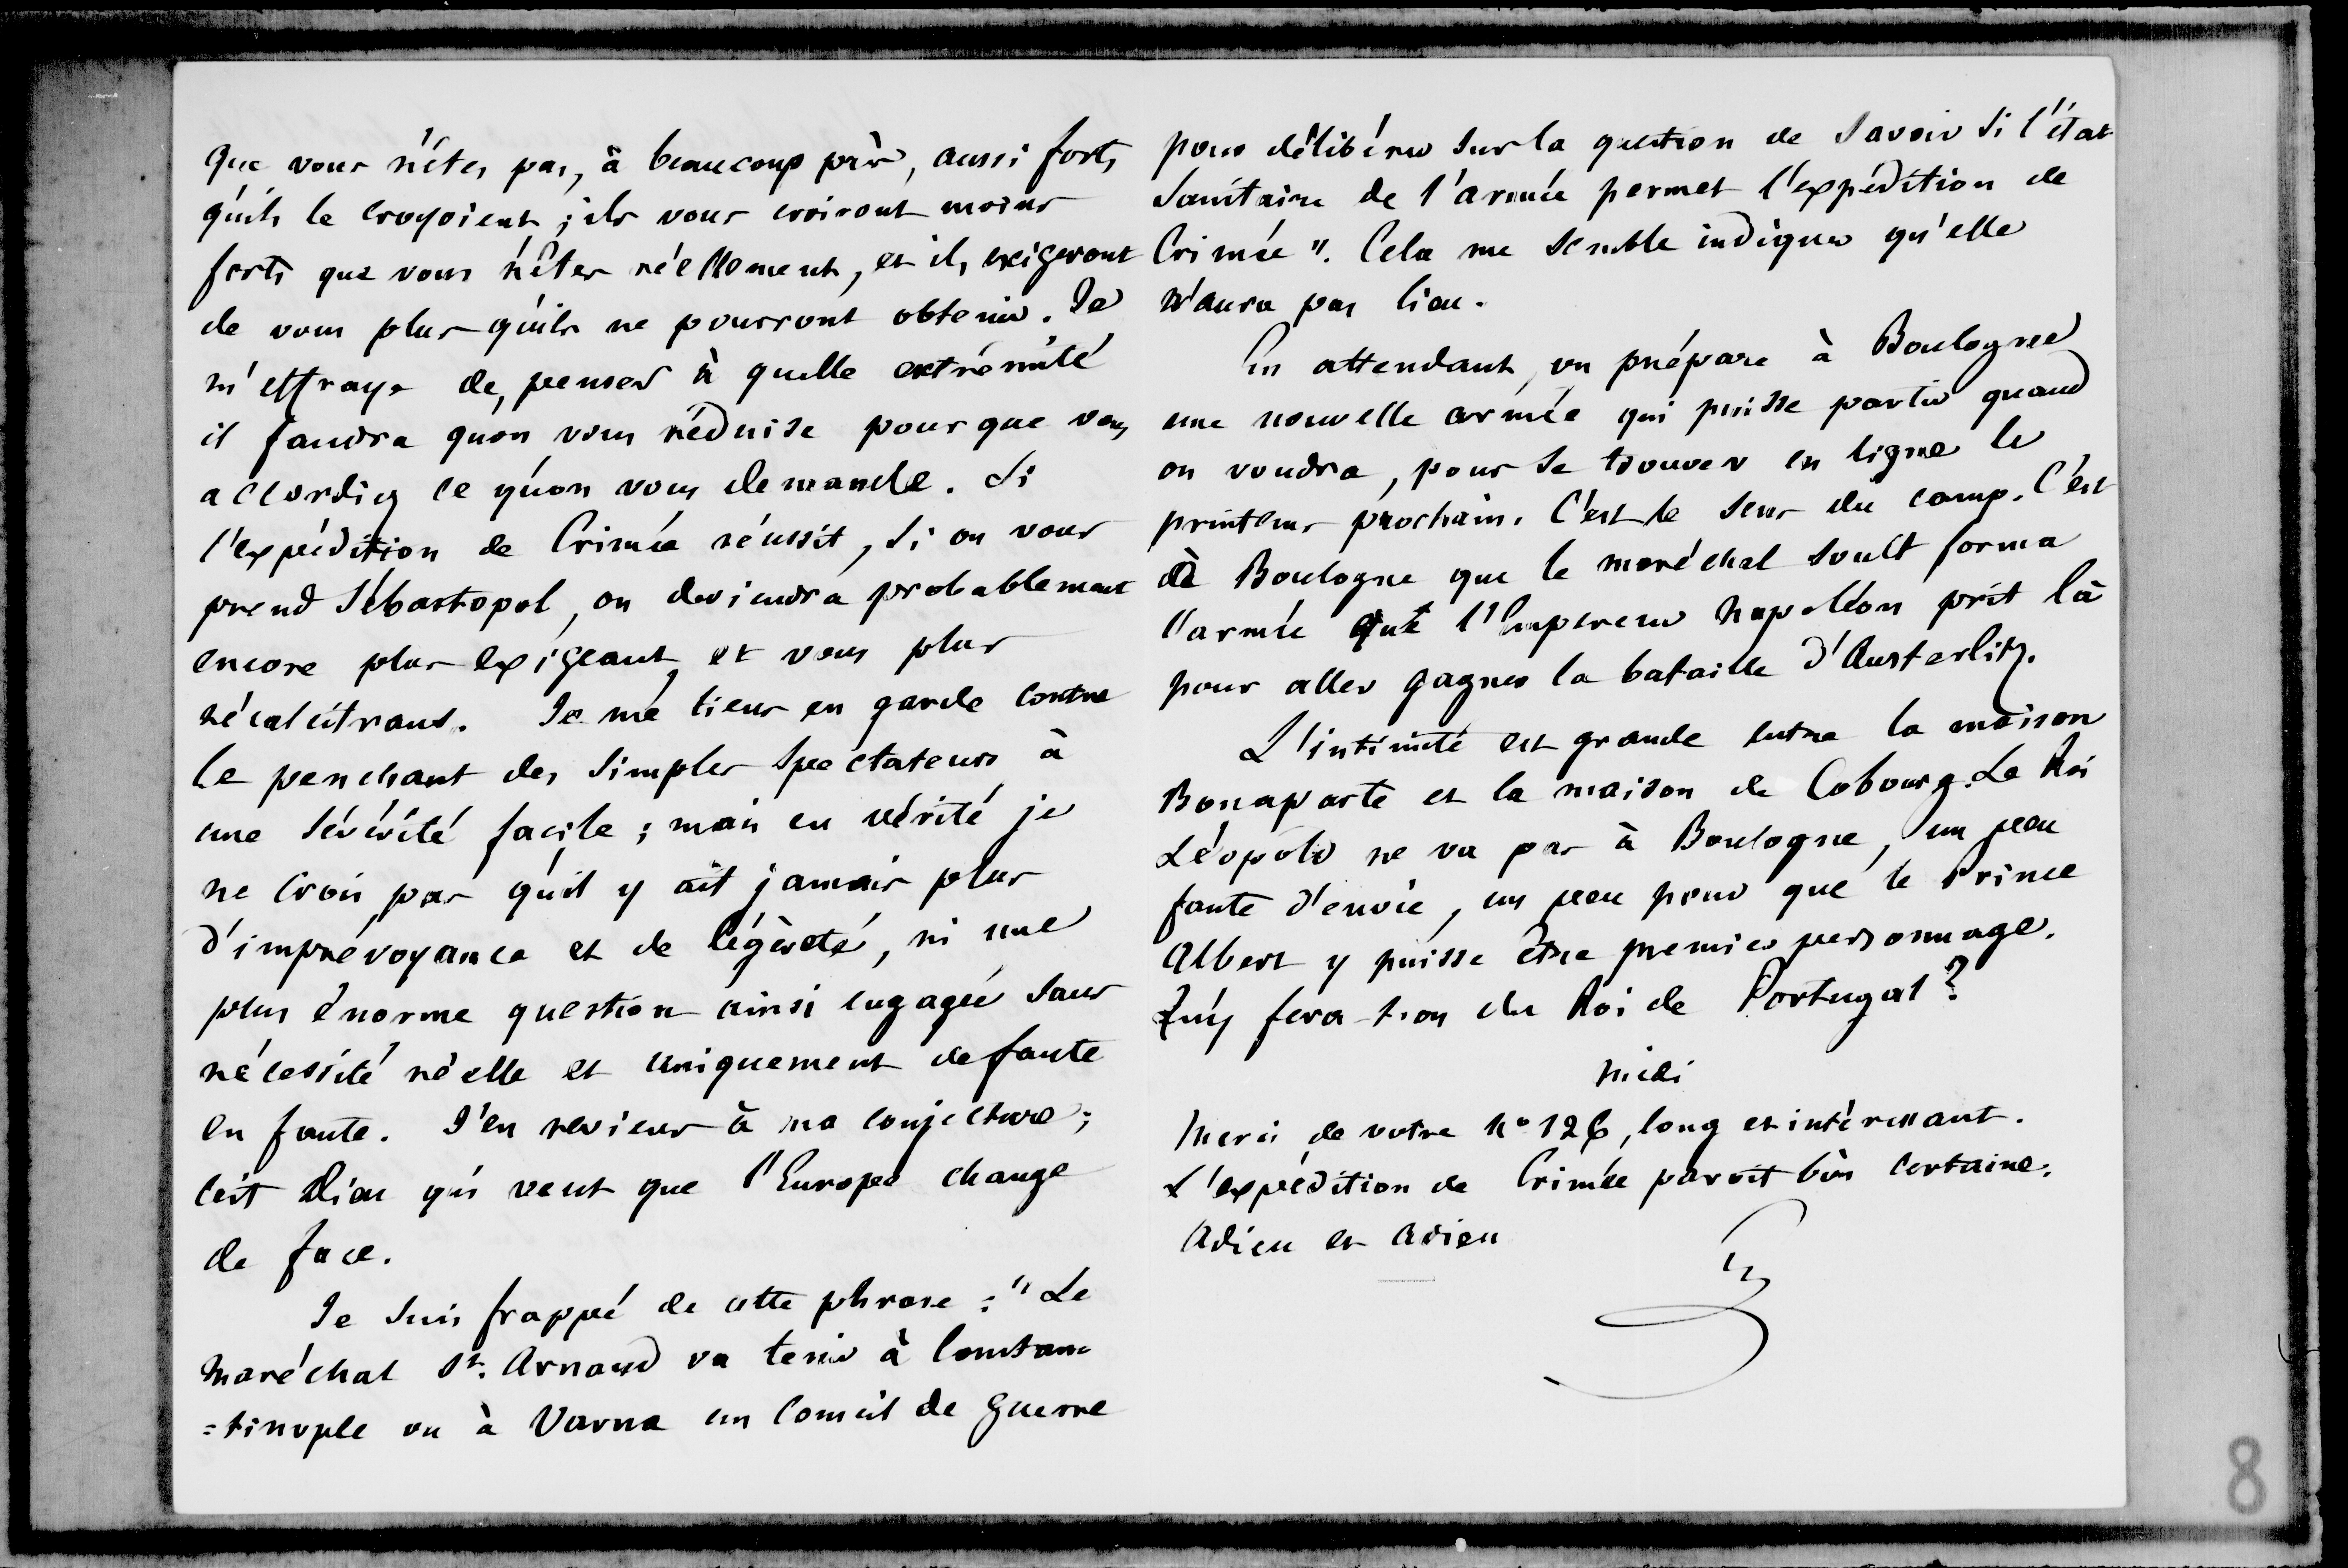 que vous n'êtes pas, à beaucoup près, aussi forts
qu'ils le croyoient ; ils vous croiront moins
forts que vous n'êtes réellement, et ils exigeront
de vous plus qu'ils ne pourront obtenir. Je
m'effraye de penser à quelle extrémité
il faudra qu'on vous réduise pour que vous
accordiez ce qu'on vous demande. Si
l'expédition de Crimée réussit, si on vous
prend Sébastopol, on deviendra probablement
encore plus exigeant, et vous plus
récalcitrant. Je me tiens en garde contre
le penchant des simples spectateurs à
une sévérité facile ; mais en vérité je
ne crois pas qu'il y ait jamais plus
d'imprévoyance et de légèreté, ni une
plus énorme question ainsi engagée sans
nécessité réelle et uniquement de faute
en faute. J'en reviens à ma conjecture ;
c'est Dieu qui veut que l'Europe change
de face.
Je suis frappé de cette phrase : "Le
Maréchal St. Arnaud va tenir à Constan=
=tinople ou à Varna un Conseil de guerre
pour délibérer sur la question de savoir si l'état
sanitaire de l'armée permet l'expédition de
Crimée". Cela me semble indiquer qu'elle
n'aura pas lieu.
En attendant, on prépare à Boulogne
une nouvelle armée qui puisse partir quand
on voudra, pour se trouver en ligne le
printems prochain. C'est le sens du camp. C'est
à Boulogne que le maréchal Soult forma
l'armée que l'Empereur Napoléon prit là
pour aller gagner la bataille d'Austerlitz.
L'intimité est grande entre la maison
Bonaparte et la maison de Cobourg. Le Roi
Léopold ne va pas à Boulogne, un peu
faute d'envie, un peu pour que le Prince
Albert y puisse être premier personnage.
Qu'y fera-t-on du Roi de Portugal ?
Midi
Merci de votre No 126, long et intéressant.
L'expédition de Crimée paroît bien certaine.
Adieu et adieu
G
8